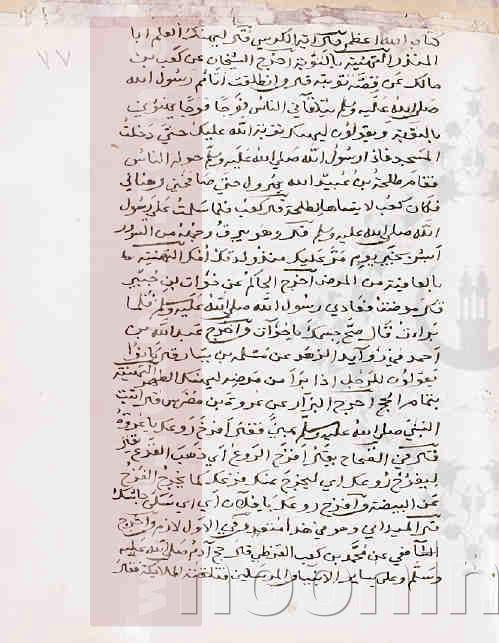 كتاب الله اعظم قال اية الكرسي قال ليهنك العلم ابا
المنذر التهنئة بالتوبة اخرج الشيخان عن كعب بن
مالك في قصة توبته قال وانطلقت اتامم رسول الله
صلى الله عليه وسلم يتلقاني الناس فوجا فوجا يهنوني
بالتوبة ويقولون ليهنك توبة الله عليك حتى دخلت
المسجد فاذا رسول الله صلى الله عليه وسلم حوله الناس
فقام طلحة بن عبيد الله يهرول حتى صافحني وهناني
فكان كعب لا ينساها لطلحة قال كعب فلما سلمت على رسول
الله صلى الله عليه وسلم قال وهو يبرق وجهه من السرور
ابشر بخير يوم مر عليك منذ ولدتك امك التهنئة
بالعافية من المرض اخرج الحاكم عن خوات بن جبير
قال مرضت فعادني رسول الله صلى الله عليه وسلم فلما
برأت قال صح جسمك يا خوات واخرج عبد الله بن
احمد في زوايد الزهد عن مسلم بن يسار قال كانوا
يقولون للرجل اذا برا من مرضه ليهنك الطهر التهنئة
بتمام الحج اخرج البزار عن عروة بن مضرس قال اتيت
النبي صلى الله عليه وسلم فقال افرخ روعك يا عروة
قال في الصحاح يقال افرخ الروع اي ذهب الفزع يقال
ليفرخ روعك اي ليخرج عنك فزعك كما يخرج الفرخ
عن البيضة وافرخ روعك يا فلان اي سكن جاشك
قال الميداني وهو في هذا متعد وفي الاول لازم واخرج
الشافعي عن محمد بن كعب القرظي قال حج آدم صلى الله عليه
وسلم وعلى ساير الانبيا والمرسلين فتلقته الملائكة فقالوا
٧٧
noormags